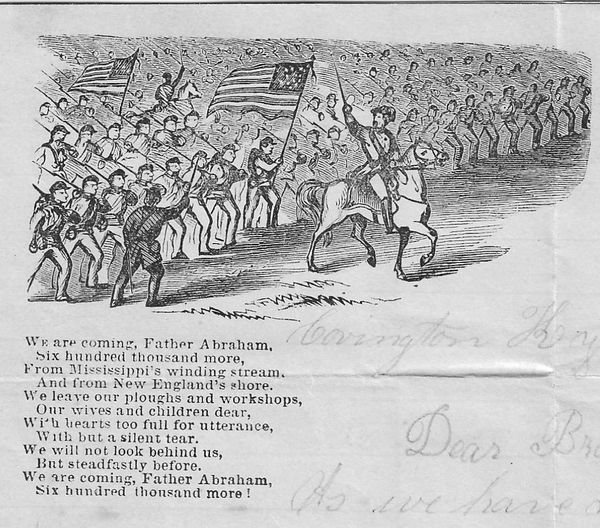 WE are coming, Father Abraham,
Six hundred thousand more,
From Mississippi's winding stream,
And from New England's shore.
We leave our ploughs and workshops,
Our wives and children dear,
With hearts too full for utterance,
With but a silent tear.
We will not look behind us,
But steadfastly before.
We are coming, Father Abraham,
Six hundred thousand more!
Covington Ky
Dear
As we have